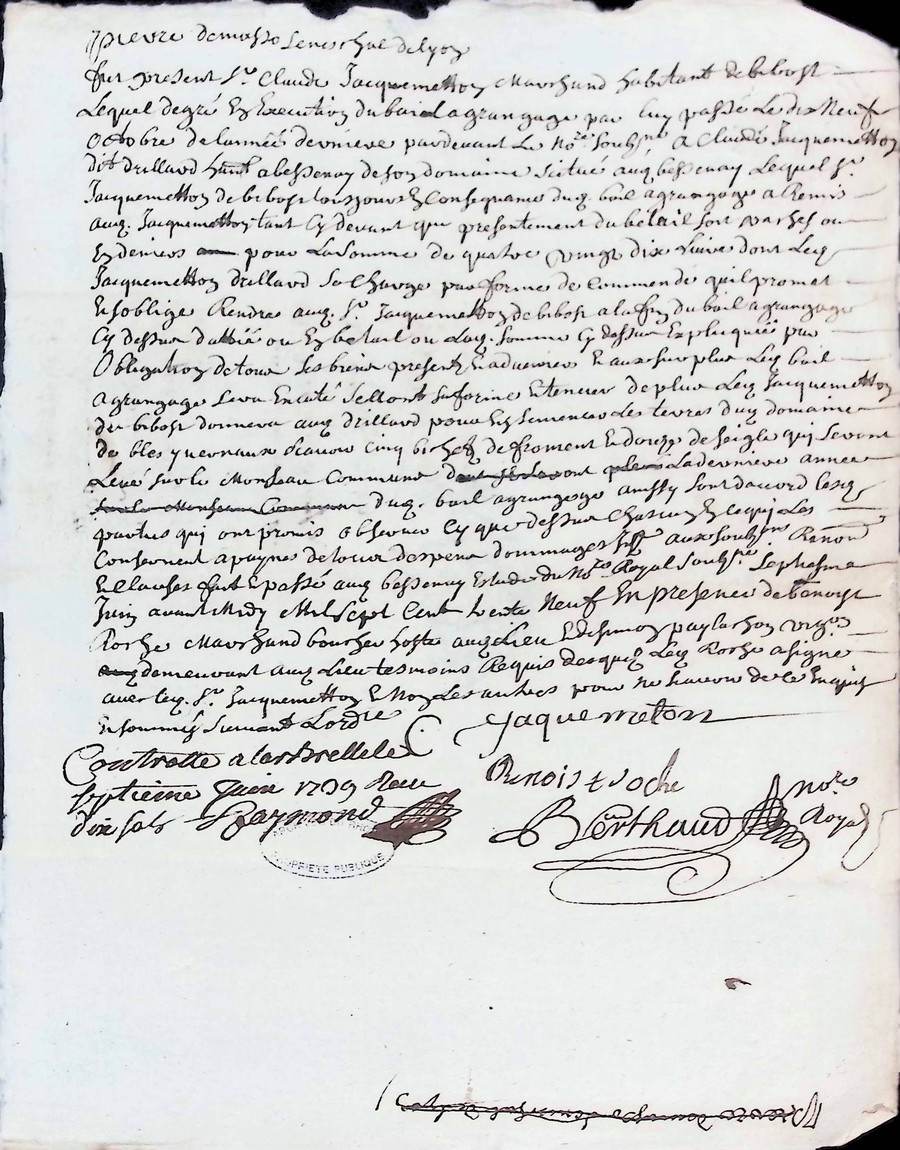 pierre demasso seneschal de lyon
fut present Sr. Claude Jacquemetton Marchand habitant de bibost
Lequel de gré En Execution du bail a grangage par luy passé Le dix Neuf
Octobre de lannée derniere pardevant Le Nore. soubsné A Claude Jacquemetton
dit drillard hant a bessenay de son domaine scitué aud bessenay Lequel Sr.
Jacquemetton de bibost tousjours En Consequance dud bail a grangage a Remis
aud. Jacquemetton tant Cy devant que presentement du bétail soit vaches ou
En deniers pour La somme de quatre vingt dix Livre dont Led
Jacquemetton drillard Se Charge par forme de Commende quil promet
Et soblige Rendre aud. Sr. Jacquemetton de bibost a la fin du bail a grangage
Cy dessus datté ou En betail ou Lad. somme Cy dessus Expliquée par
Obligation de tous ses biens presents Et advenirs Et au surplus Led bail
a grangage sera Enexécuté sellont sa forme Et teneur de plus Led Jacquemetton
de bibost donnera aud drillard pour Ensemencer Les terres dud domaine
de bles yvernaux scavoir cinq bichets de froment Et douze de seigle qui seront
Levé sur le Monseau Commune La derniere année
dud. bail a grangage aussy sont daccord Lesd
parties qui ont promis observer Cy que dessus Chascun En ce qui Les
Concernent a paynes de tous despens dommages aux soubsons Renon
Et Clauses fait Et passé aud bessenay Estude du Nore Royal soubsné Le septiesme
Juin avant Midy Mil sept Cent trente Neuf En presence de benoist
Roche Marchand boucher hoste aud Lieu Et de simon paylachon vigon
demeurant aud Lieu tesmoins Requis desquels Led Roche a signé
avec led. Sr. Jacquemetton Et Non Les autres pour ne scavoir de ce Enquis
Et sommés suivant Lordre
Jaquemeton
Controllé a larbrelle le
septieme Juin 1739 Receu
dix sols Raymond
Benoist roche
Berthaud nore Royal
PROPRIETE PUBLIQUE